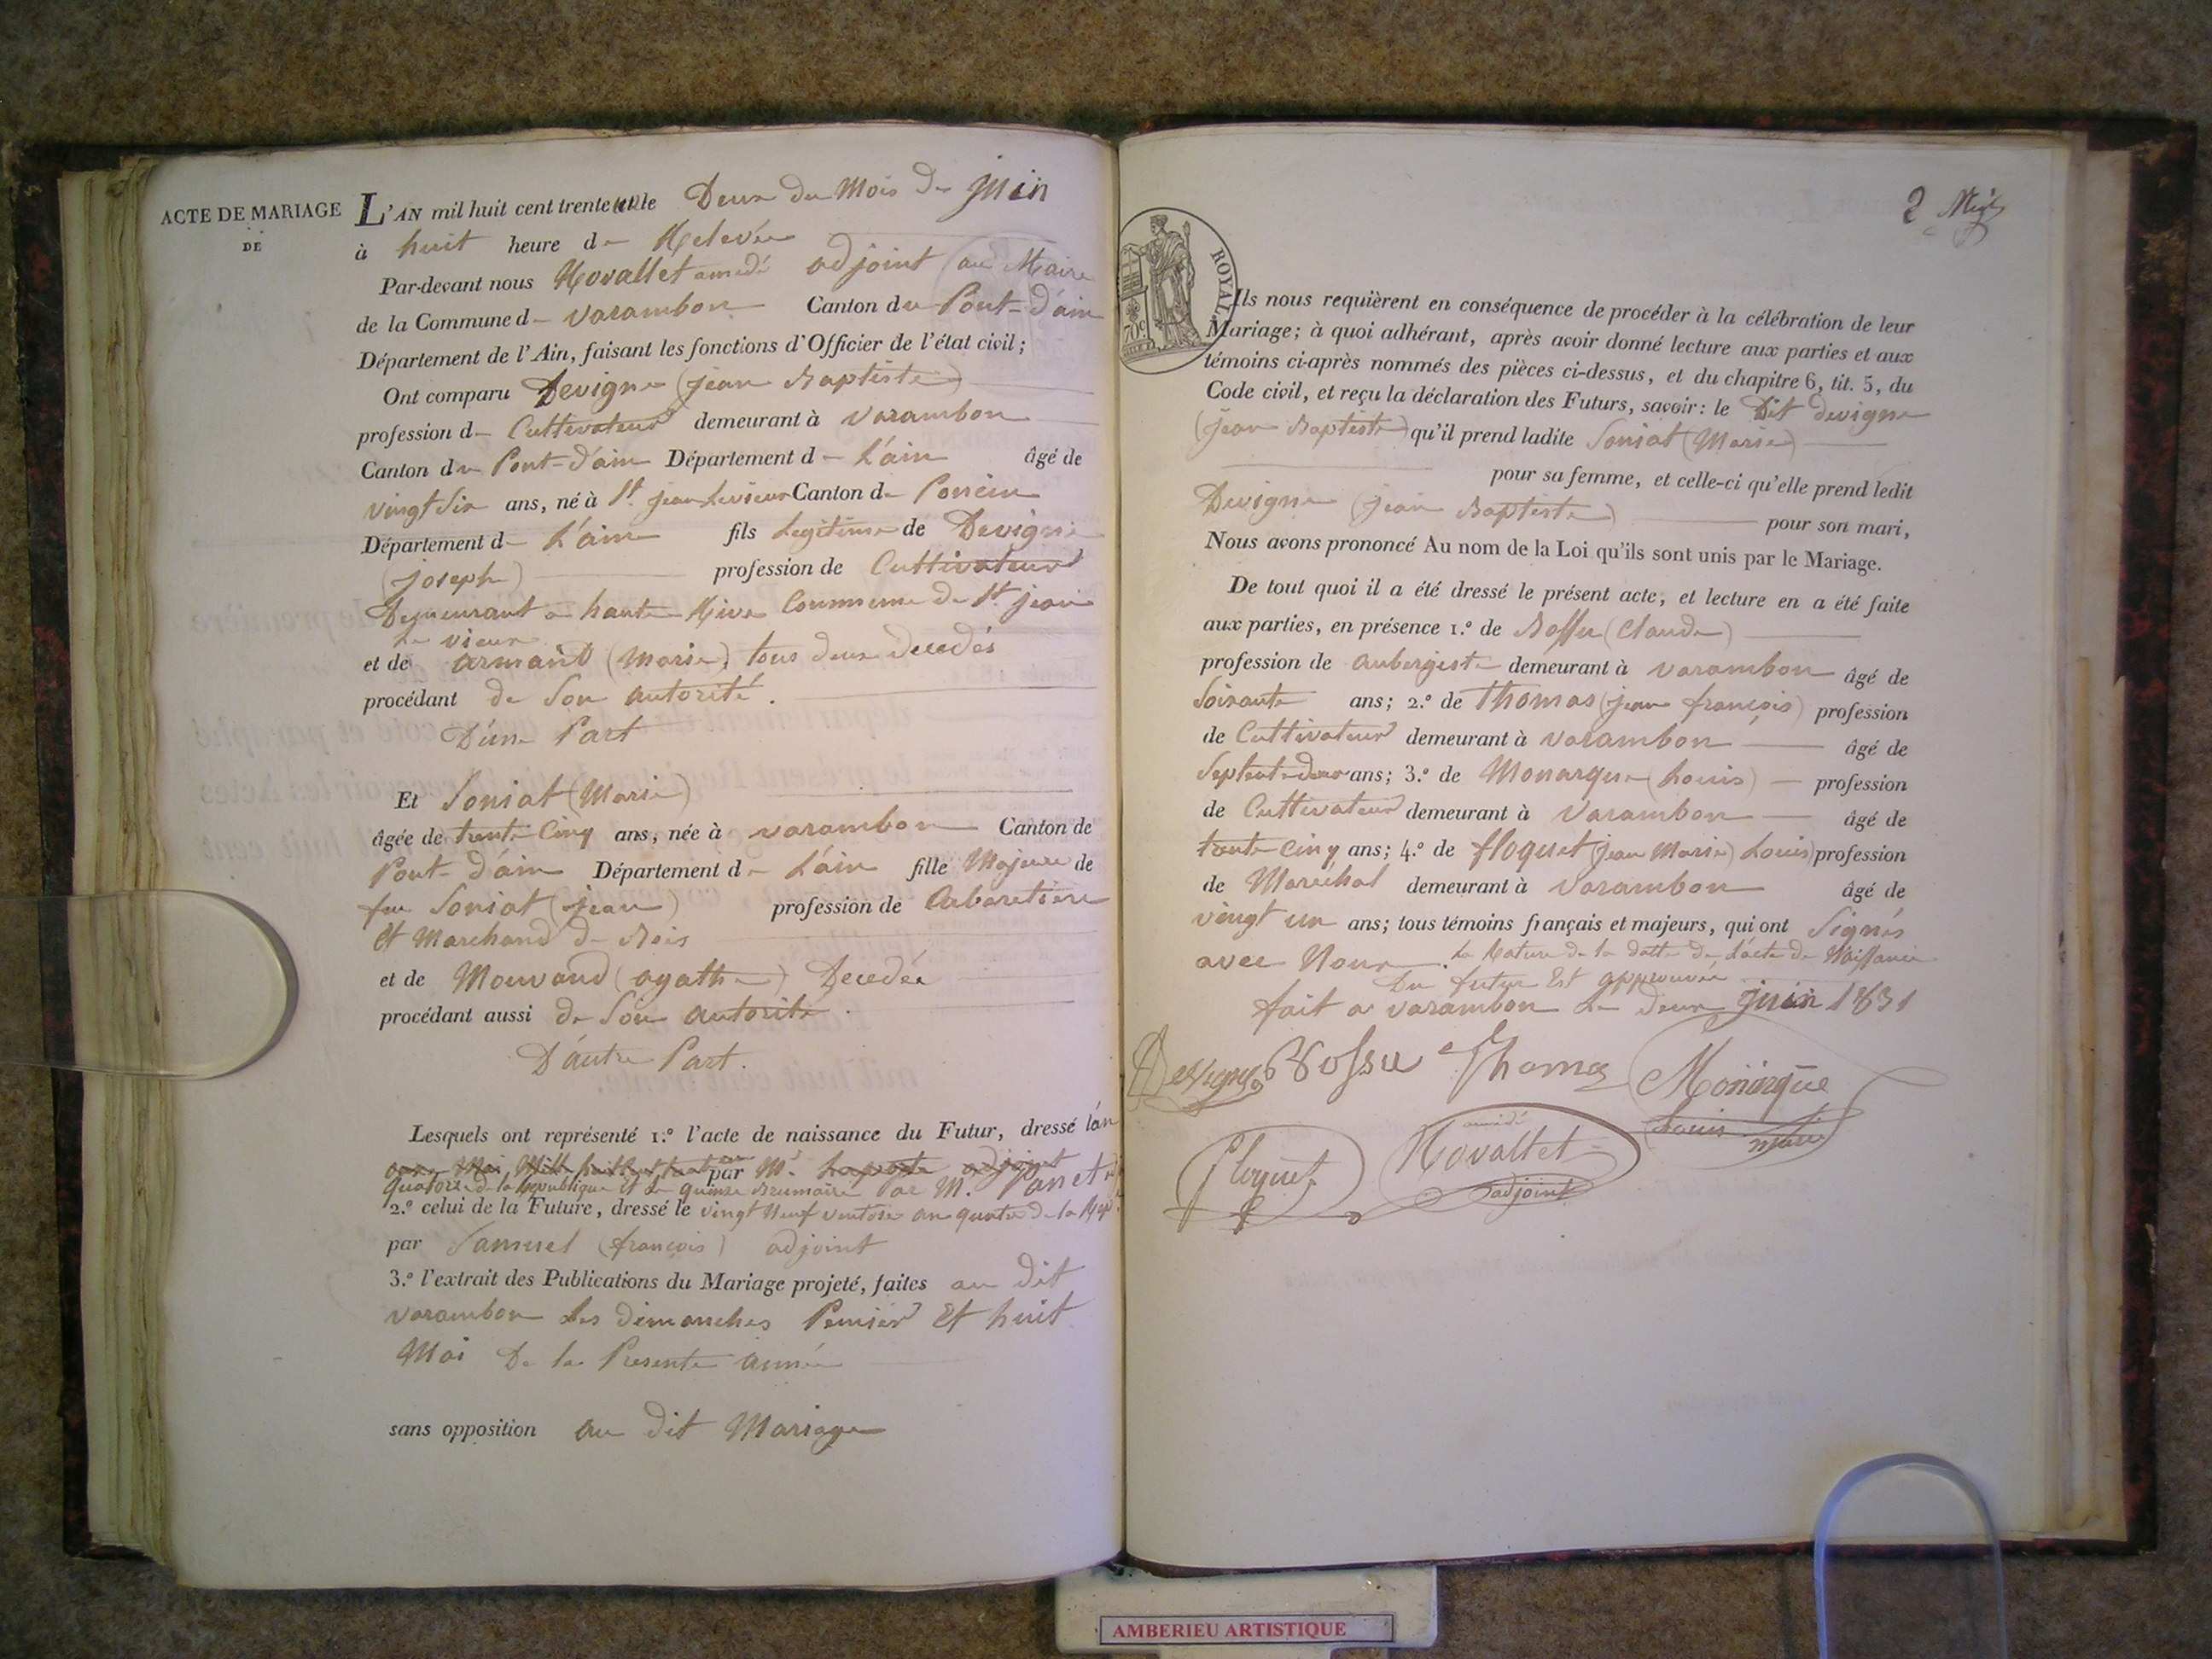 ACTE DE MARIAGE
DE
L'AN mil huit cent trente un le Deux du Mois de Juin
à huit heure de Relevée
Par-devant nous Rovallet amedé adjoint au Maire
de la Commune de varambon Canton du Pont-d'ain
Département de l'Ain, faisant les fonctions d'Officier de l'état civil;
Ont comparu Devigne (jean Baptiste)
profession de Cultivateur demeurant à varambon
Canton du Pont-d'ain Département de L'ain âgé de
vingt Six ans, né à St. jean Levieux Canton de Poncin
Département de L'ain fils Legitime de Devigne
(joseph) profession de Cultivateur
Demeurant a haute Rive Commune de St. jean
le vieux
et de armand (Marie) tous deux decedés
procédant de Son autorité.
D'une Part
Et Soniat (Marie)
âgée de trente Cinq ans, née à varambon Canton de
Pont-d'ain Département de L'ain fille Majeure de
feu Soniat (jean) profession de Cabaretiere
et Marchand de Bois
et de Mouvand (agathe) Decedée
procédant aussi de Son autorité.
D'autre Part.
Lesquels ont représenté 1.º l'acte de naissance du Futur, dressé l'an
par Mr. adjoint
quatorze de la Republique et le quinze Brumaire Par M. Panet
2.º celui de la Future, dressé le vingt Neuf ventose an quatre de la Rep.
par Samuel (françois) adjoint
3.º l'extrait des Publications du Mariage projeté, faites au dit
varambon les dimanches Premier Et huit
Mai De la Presente année
sans opposition au dit Mariage
2
ROYAL
70c
Ils nous requièrent en conséquence de procéder à la célébration de leur
Mariage; à quoi adhérant, après avoir donné lecture aux parties et aux
témoins ci-après nommés des pièces ci-dessus, et du chapitre 6, tit. 5, du
Code civil, et reçu la déclaration des Futurs, savoir: le Dit devigne
(jean Baptiste) qu'il prend ladite Soniat (Marie)
pour sa femme, et celle-ci qu'elle prend ledit
Devigne (jean Baptiste) pour son mari,
Nous avons prononcé Au nom de la Loi qu'ils sont unis par le Mariage.
De tout quoi il a été dressé le présent acte, et lecture en a été faite
aux parties, en présence 1.º de Bossu (Claude)
profession de aubergiste demeurant à varambon âgé de
Soixante ans; 2.º de Thomas (jean françois) profession
de Cultivateur demeurant à varambon âgé de
Septente deux ans; 3.º de Monarque (Louis) profession
de Cultivateur demeurant à varambon âgé de
trente cinq ans; 4.º de floquet (jean Marie) Louis profession
de Maréchal demeurant à varambon âgé de
vingt un ans; tous témoins français et majeurs, qui ont Signés
avec Nous. La Rature de la datte de L'acte de Naissance
Du futur Est approuvée
fait a varambon Le deux Juin 1831
Devigne Bossu Thomas Monarque
Louis
Floquet amedé Rovallet
adjoint
AMBERIEU ARTISTIQUE